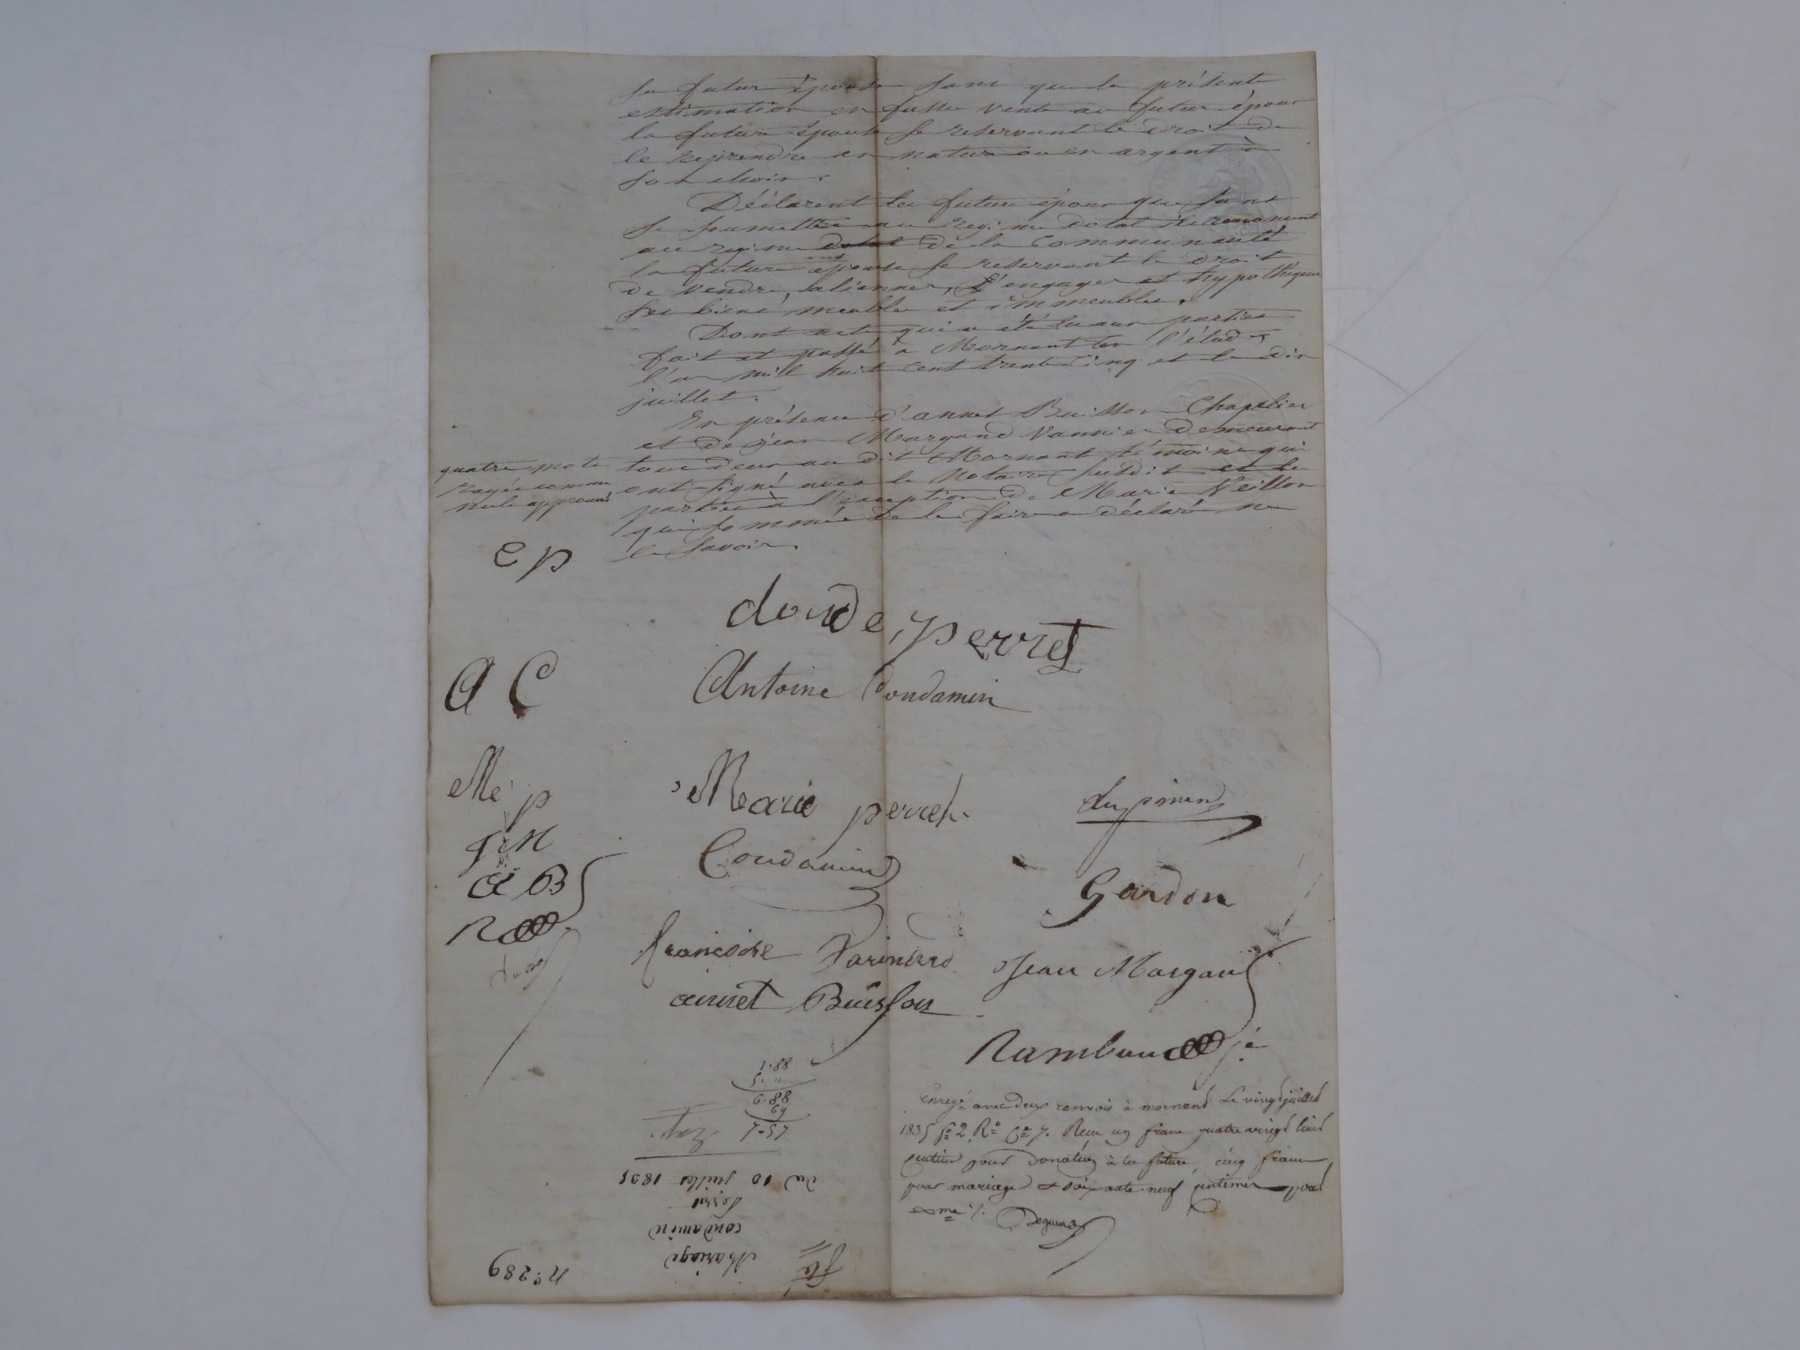 la future épouse sans que la présente
estimation en fasse vente au futur époux
la future épouse se reservant le droit de
le reprendre en nature ou en argent à
son choix.
Déclarent les futurs époux que sans
se soumettre au régime dotal ils renoncent
au regime dotal de la communauté
la future épouse se reservant le droit
de vendre, alienner, d'engager et hypothéquer
ses biens meubles et immeubles.
Dont acte qui a été lu aux parties
fait et passé à Mornant en l'étude
l'an mil huit cent trente cinq et le dix
juillet.
En présence d'annet Buisson Chapelier
et de Jean Margand Vannier demeurant
tous deux au dit Mornant témoins qui
ont signé avec le Notaire susdit et les
parties à l'exception de Marie Veillon
qui sommée de le faire a déclaré ne
le savoir.
quatre mots
rayés comme
nuls approuvé
e p
perret
A C
Antoine Condamin
Me p
Marie perret
dupinund
J M
Condamin
a B
Gardon
R
francoise
Jean Margand
annet Buisson
Rambaud
Enregé avec deux renvois à mornand Le vingt juillet
1835 fo 2 Ro Ce 7. Recu un franc quatre vingt huit
centimes pour donation à la future, cinq francs
pour mariage et soixante neuf centimes pour
Xme /.
1.88
5. "
6.88
69
7.57
Du 10 juillet 1835
Condamin
Mariage
No 289